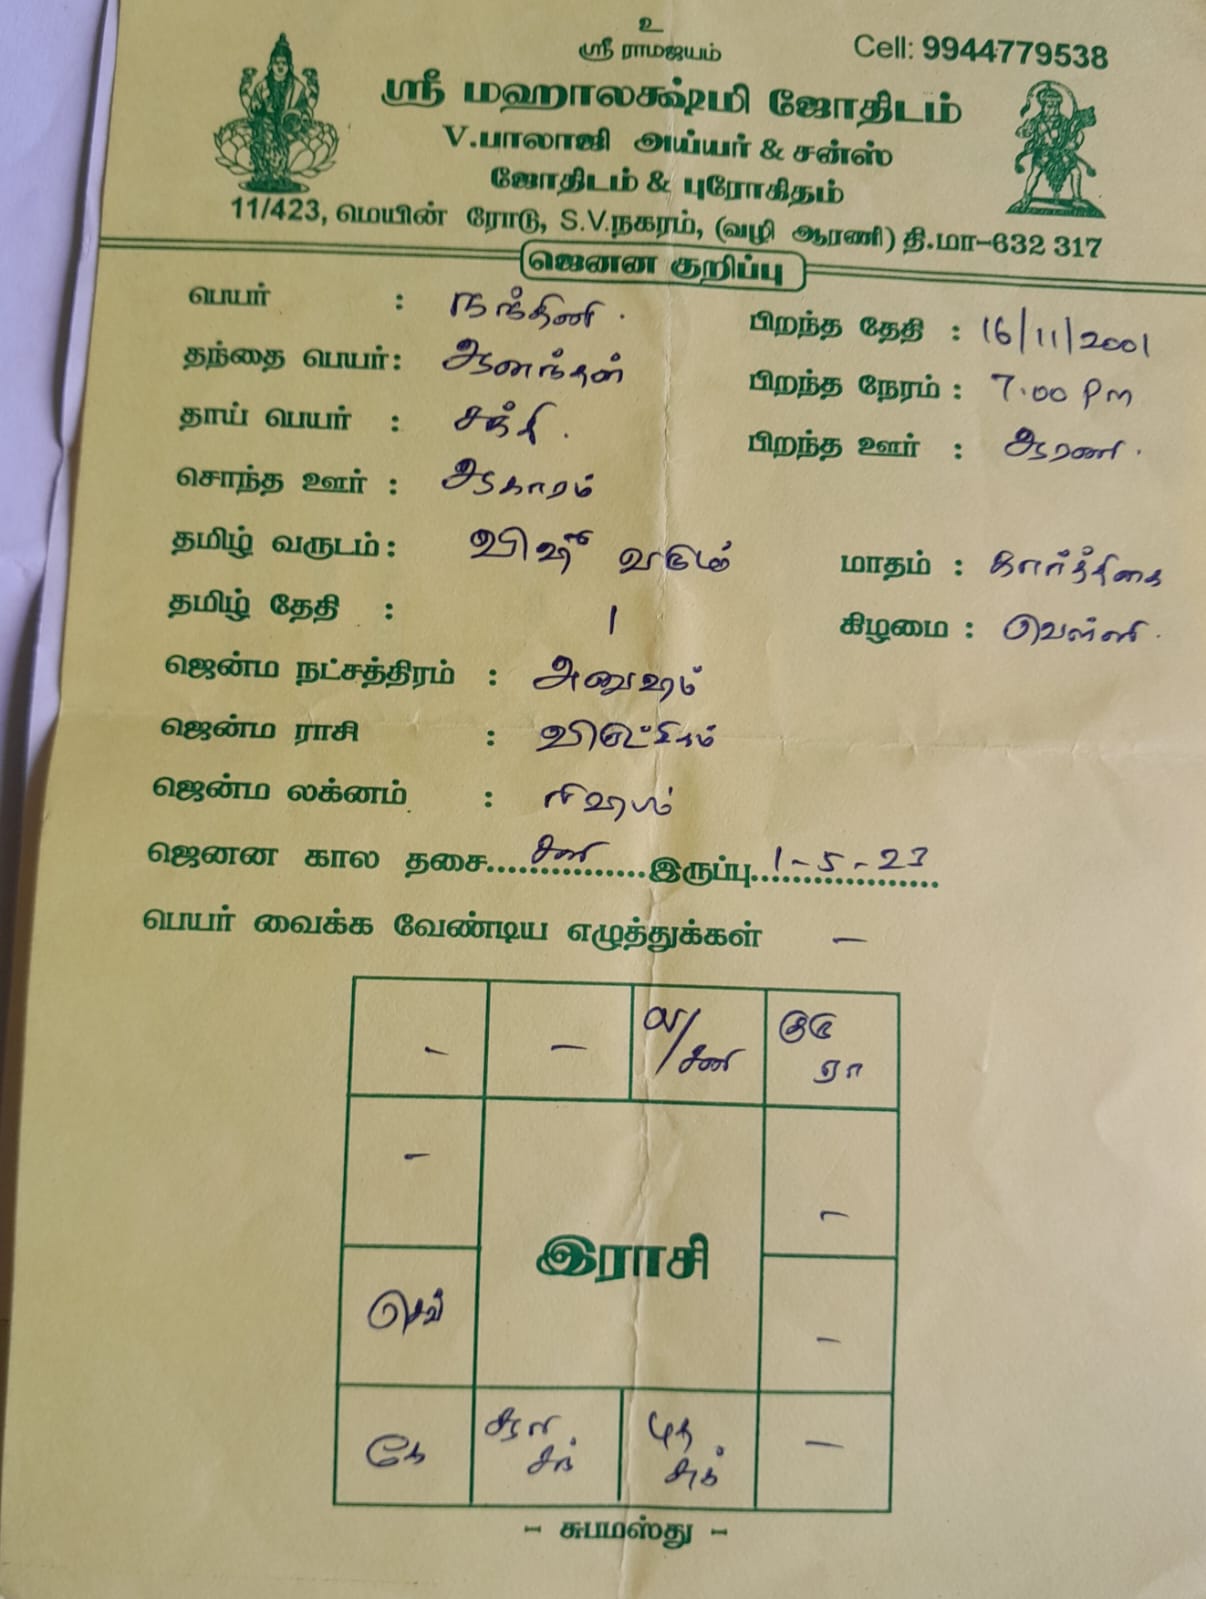 உ
ஸ்ரீ ராமஜயம்
Cell: 9944779538
ஸ்ரீ மஹாலக்ஷ்மி ஜோதிடம்
V.பாலாஜி அய்யர் & சன்ஸ்
ஜோதிடம் & புரோகிதம்
11/423, மெயின் ரோடு, S.V.நகரம், (வழி ஆரணி) தி.மா-632 317
ஜெனன குறிப்பு
பெயர் : நந்தினி . பிறந்த தேதி : 16/11/2001
தந்தை பெயர் : ஆனந்தன் பிறந்த நேரம் : 7.00 Pm
தாய் பெயர் : சக்தி . பிறந்த ஊர் : ஆரணி .
சொந்த ஊர் : ஆகாரம்
தமிழ் வருடம் : விஷீ வருடம் மாதம் : கார்த்திகை
தமிழ் தேதி : 1 கிழமை : வெள்ளி .
ஜென்ம நட்சத்திரம் : அனுஷம்
ஜென்ம ராசி : விருட்சிகம்
ஜென்ம லக்னம் : ரிஷபம்
ஜெனன கால தசை.....சனி.....இருப்பு.....1-5-23.....
பெயர் வைக்க வேண்டிய எழுத்துக்கள் –
– – ல/சனி குரு ரா
– –
இராசி
செவ் –
கே சூரி சந் புத சுக் –
- சுபமஸ்து -